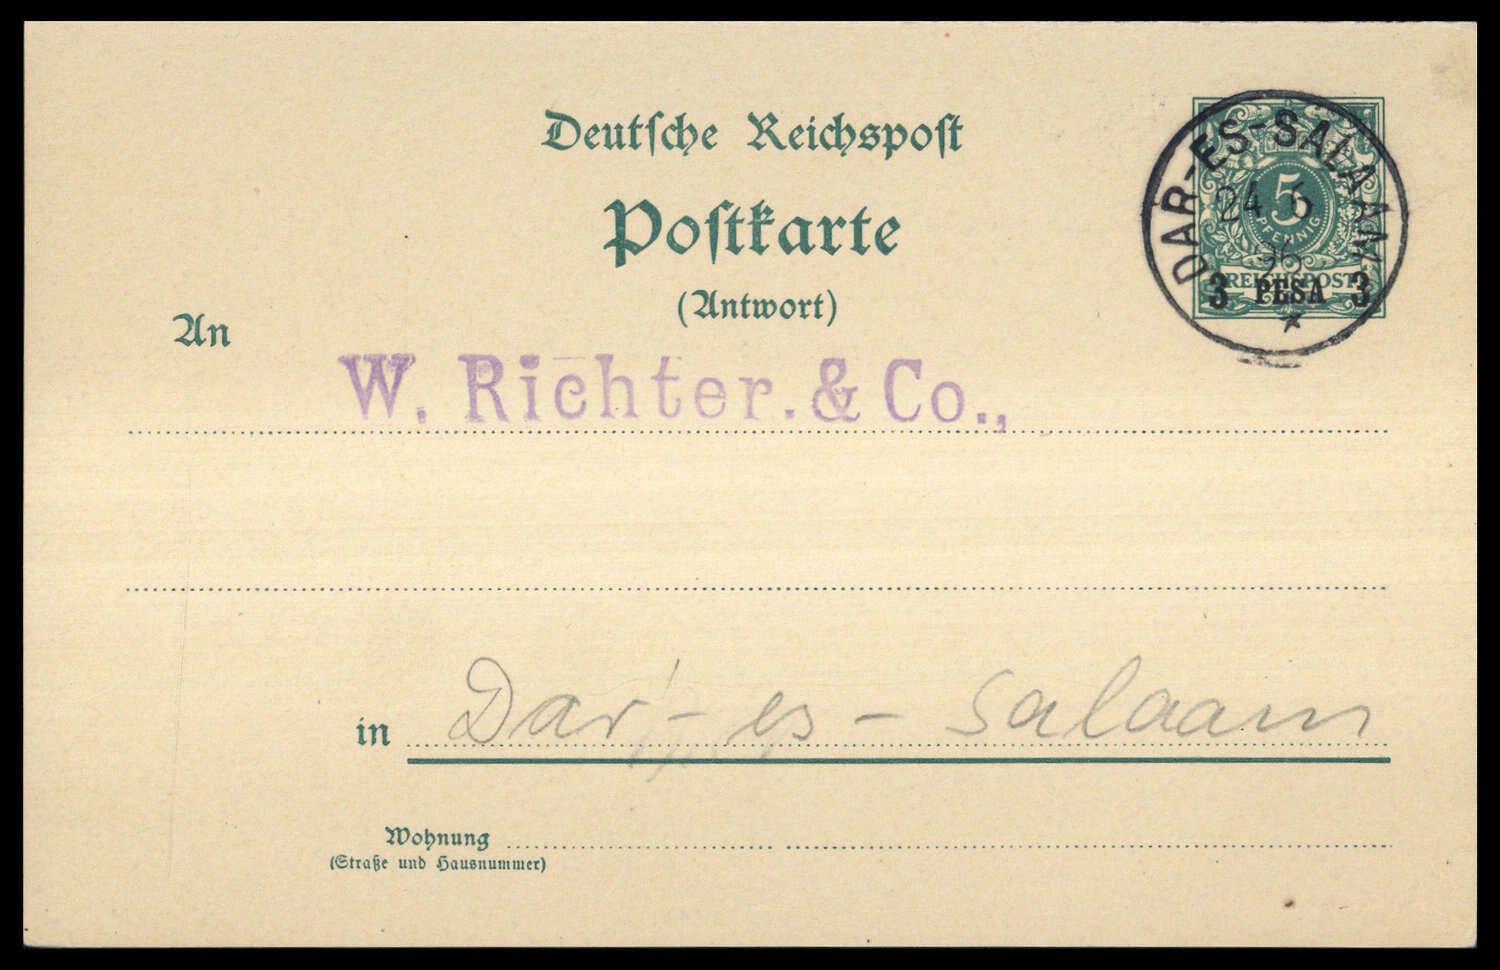 Deutsche Reichspost
Postkarte
(Antwort)
DAR-ES-SALAAM
24 6
96
5
PFENNIG
REICHSPOST
3 PESA 3
An
W. Richter. & Co.,
in Dar-es-Salaam
Wohnung
(Straße und Hausnummer)